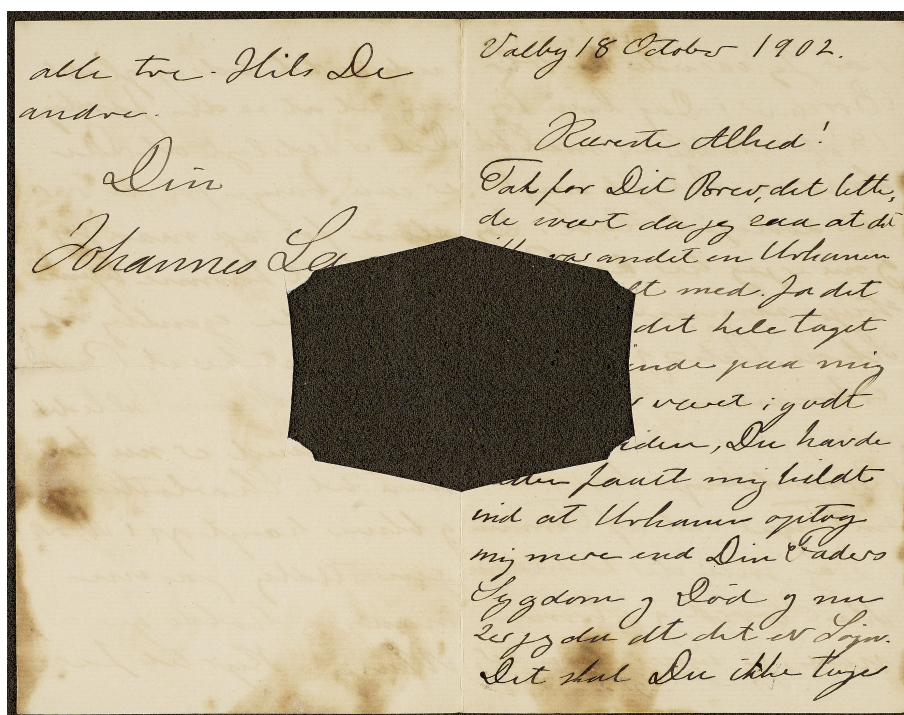 alle tre. Hils De
andre.
Din
Johannes La
Valby 18 October 1902.
Kæreste Alhed!
Tak for Dit Brev, det lette,
de svært da jeg saa at det
var andet en Urhanen
lt med. Ja det
det hele taget
inde paa mig
været i godt
iden, Du havde
faaet mig bildt
ind at Urhanen optog
mig mere end Din Faders
Sygdom og Død og nu
ser jeg da at det er Løgn.
Det skal Du ikke tage